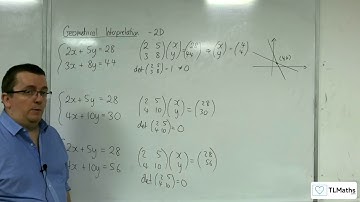 Geometrical Interpretation - 2D
{ 2x + 5y = 28
3x + 8y = 44
(2 5
3 8)(x
y) = (28
44) ⇒ (x
y) = (4
4)
det(2 5
3 8) = 1 ≠ 0
(4,4)
{ 2x + 5y = 28
4x + 10y = 30
(2 5
4 10)(x
y) = (28
30)
det(2 5
4 10) = 0
2x + 5y = 28
4x + 10y = 56
(2 5
4 10)(x
y) = (28
56)
det(2 5
4 10) = 0
TLMaths